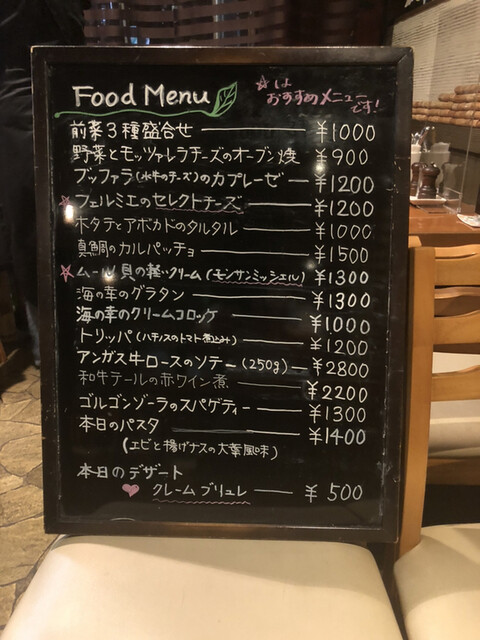 Food Menu
☆は
おすすめメニュー
です!
前菜3種盛合せ ¥1000
野菜とモッツァレラチーズのオーブン焼 ¥900
ブッファラ(水牛のチーズ)のカプレーゼ ¥1200
☆フェルミエのセレクトチーズ ¥1200
ホタテとアボカドのタルタル ¥1000
真鯛のカルパッチョ ¥1500
☆ムール貝の軽いクリーム(モンサンミッシェル) ¥1300
海の幸のグラタン ¥1300
海の幸のクリームコロッケ ¥1000
トリッパ(ハチノスのトマト煮込み) ¥1200
アンガス牛ロースのソテー(250g) ¥2800
和牛テールの赤ワイン煮 ¥2200
ゴルゴンゾーラのスパゲティー ¥1300
本日のパスタ ¥1400
(エビと揚げナスの大葉風味)
本日のデザート
♥ クレームブリュレ ¥500